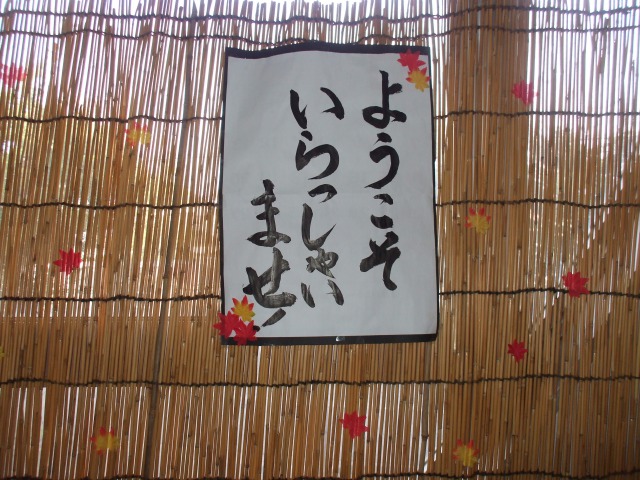 ようこそ
いらっしゃい
ませ!